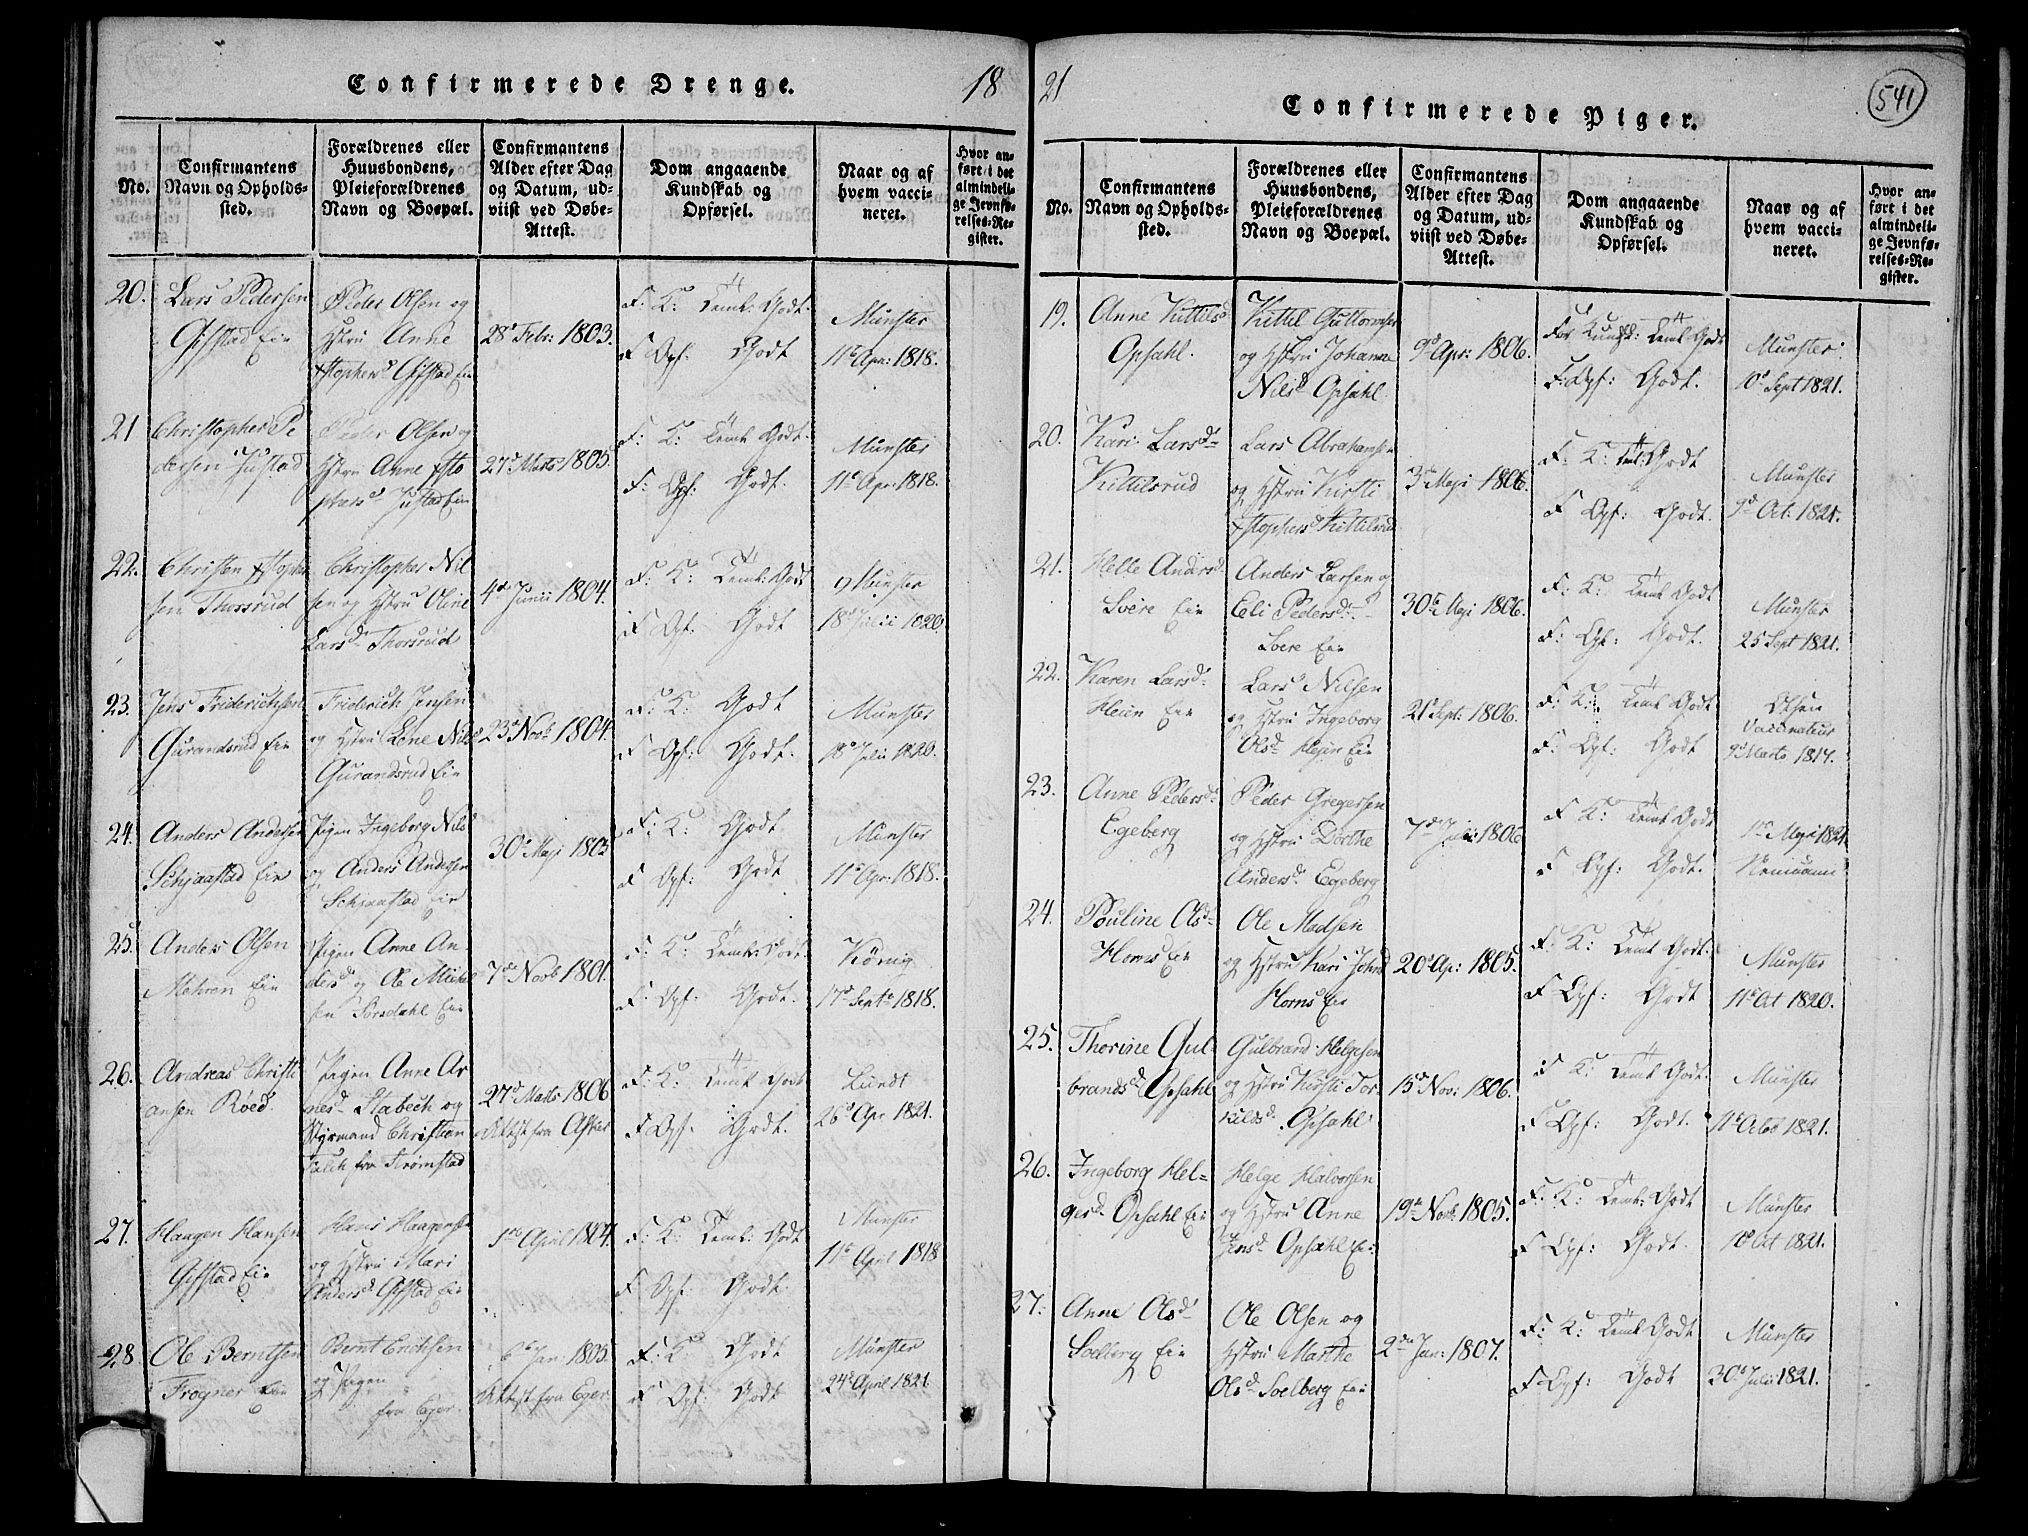 Confirmerede Drenge. 18
No.
Confirmantens Navn og Opholds-sted.
Forældrenes eller Huusbondens, Pleieforældrenes Navn og Boepæl.
Confirmantens Alder efter Dag og Datum, ud-viist ved Døbe-Attest.
Dom angaaende Kundskab og Opførsel.
Naar og af hvem vacci-neret.
Hvor an-ført i det almindeli-ge Jevnfø-relses-Re-gister.
20.
Lars Pedersen
Gifstad Eie
Peder Olsen og
Hstru Anne
Xstophersd Gifstad Eie
28d Febr: 1803.
F. K: Teml: Godt.
F Opf: Godt
Munster
11te Apr: 1818.
21
Christopher Pe
dersen Justad
Peder Olsen og
Hstru Anne Xsto
phersd Justad Eie
27d Marts 1805
F: K: Teml Godt.
F: Opf: Godt.
Munster
11te Apr. 1818.
22.
Christen Xstopher
sen Thorsrud
Christopher Nil
sen og Hstru Oline
Larsd Thorsrud
4de Junii 1804.
F: K: Teml: Godt
F Opf: Godt
Munster
18d Julii 1820.
23.
Jens Friderichsen
Gurandsrud Eie
Friderich Jensen
og Hstru Lene Nilsd
Gurandsrud Eie
23d Novb 1804.
F: K: Godt
F Opf: Godt.
Munster
18d Julii 1820.
24.
Anders Andersen
Schjaastad Eie
Pigen Ingeborg Nilsd
og Anders Andersen
Schjaastad Eie
30d Maji 1803
F: K: Godt
F Opf: Godt
Munster
11te Apr: 1818.
25.
Anders Olsen
Mehren Eie
Pigen Anne An
dersd og Ole Mickel
sen Sørsdahl Eie
7de Novb 1801.
F: K: Teml: Godt.
F: Opf: Godt.
König
17d Septe 1818.
26.
Andreas Christi
ansen Röed.
Pigen Anne Ar
nesd Stabech og
Styrmand Christian
Falch fra Strømstad
27d Marts 1806
Attest fra Asker
F: K: Teml Godt
F Opf. Godt.
Lundt
26d Apr 1821.
27.
Haagen Hansen
Gifstad Eie
Hans Haagensen
og Hstru Mari
Andersd Gifstad Eie
1ste April 1804.
F. K: Teml: Godt
F. Opf: Godt.
Munster
11te April 1818
28
Ole Berntsen
Frogner Eie
Bernt Erichsen
og Pigen
fra Eger.
6te Jan: 1805.
Attest fra Eger
F: K: Godt
F Opf: Godt
Munster
24de April 1821
21 Confirmerede Piger.
541
No.
Confirmantens Navn og Opholds-sted.
Forældrenes eller Huusbondens, Pleieforældrenes Navn og Boepæl.
Confirmantens Alder efter Dag og Datum, ud-viist ved Døbe-Attest.
Dom angaaende Kundskab og Opførsel.
Naar og af hvem vacci-neret.
Hvor an-ført i det almindeli-ge Jevnfø-relses-Re-gister.
19.
Anne Kittilsd
Opsahl.
Kittil Guttormsen
og Hstru Johanne
Nilsd Opsahl
9d Apr: 1806.
For Kundsk: Teml Godt
F: Opf: Godt.
Munster
10d Sept 1821.
20.
Kari Larsd
Kittilsrud
Lars Abrahamsen
og Hstru Kirsti
Xstophersd Kittilsrud
3die Maji 1806.
F: K: Teml: Godt
F Opf: Godt.
Munster
9d Oct: 1821.
21.
Helle Andersd
Soere Eie
Anders Larsen og
Eli Pedersd
Soere Eie
30te Maji 1806.
F: K: Teml Godt
F: Opf: Godt.
Munster
25 Sept 1821.
22.
Karen Larsd
Heien Eie
Lars Nilsen
og Hstru Ingeborg
Olsd Hejen Eie
21d Sept: 1806.
F: K: Teml Godt
F: Opf: Godt
Olsen
Vaccinateur
9d Marts 1814.
23.
Anne Pedersd
Egeberg
Peder Gregersen
og Hstru Dorthe
Andersd Egeberg
7de Julii 1806
F K: Teml Godt
F Opf: Godt.
1ste Maji 1821
24.
Pouline Olsd
Horns Eie
Ole Madsen
og Hstru Kari Johnsd
Horns Eie
20d Ap: 1805.
F. K: Teml Godt:
F Opf: Godt
Munster
11te Oct 1820.
25.
Thorine Gul
brandsd Opsahl
Gulbrand Helgesen
og Hstru Kirsti Tor
kildsd Opsahl
15d Nov: 1806.
F K: Teml Godt:
F Opf: Godt.
Munster
11te Octob 1821.
26.
Ingeborg Hel-
gesd Opsahl Eie
Helge Halvorsen
og Hstru Anne
Jensd Opsahl Eie
19de Novb: 1805.
F: K: Teml: Godt
F Opf: Godt.
Munster
10d Oct 1821.
27.
Anne Olsd
Soelberg Eie
Ole Olsen og
Hstru Marthe
Olsd Soelberg Eie
2den Jan: 1807.
F: K: Teml Godt
F Opf: Godt
Munster
30d Juli 1821.